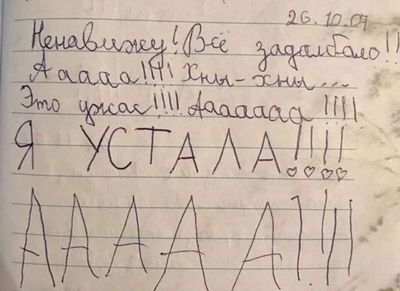 26.10.07
Ненавижу! Всё задалбало!!
Ааааа!!!! Хны-хны...
Это ужас!!!! Аааааа!!!!
Я УСТАЛА!!!!
АААА А!!!!